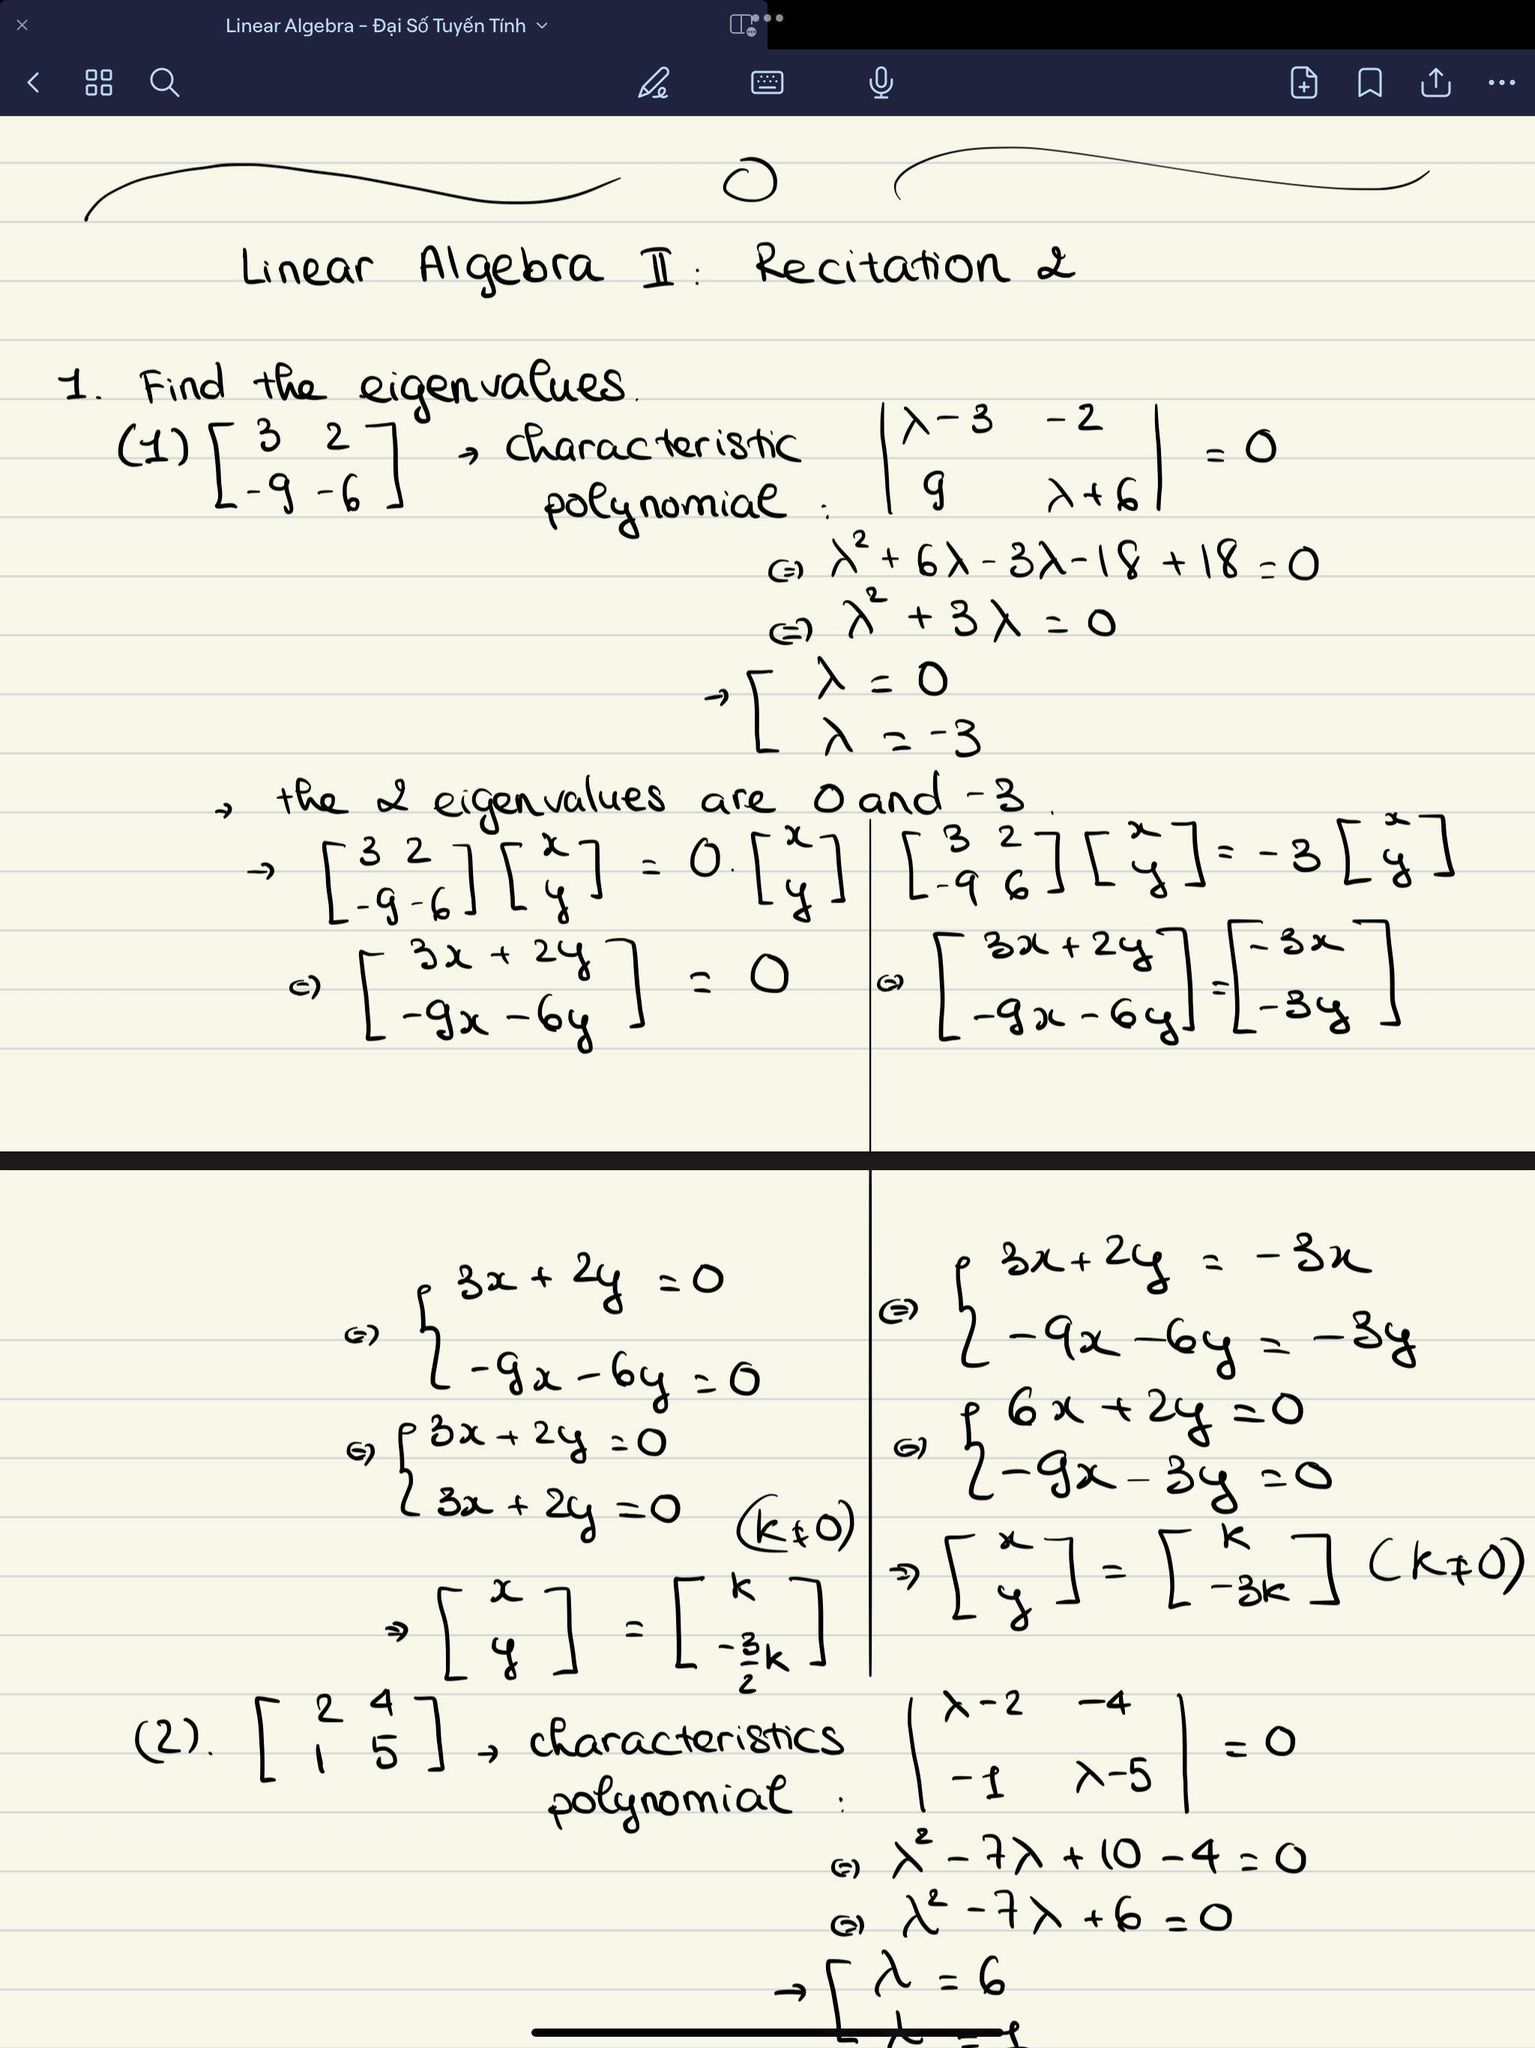 Linear Algebra - Đại Số Tuyến Tính
Linear Algebra II: Recitation 2
1. Find the eigenvalues.
(1) [3 2; -9 -6] → characteristic polynomial: |λ-3 -2; 9 λ+6| = 0
⇔ λ² + 6λ - 3λ - 18 + 18 = 0
⇔ λ² + 3λ = 0
→ [ λ = 0
λ = -3
→ the 2 eigenvalues are 0 and -3.
→ [3 2; -9 -6] [x; y] = 0. [x; y]
⇔ [3x + 2y; -9x - 6y] = 0
[3 2; -9 6] [x; y] = -3 [x; y]
⇔ [3x + 2y; -9x - 6y] = [-3x; -3y]
⇔ { 3x + 2y = 0
-9x - 6y = 0
⇔ { 3x + 2y = 0
3x + 2y = 0 (k ≠ 0)
⇒ [x; y] = [k; -3/2 k]
⇔ { 3x + 2y = -3x
-9x - 6y = -3y
⇔ { 6x + 2y = 0
-9x - 3y = 0
⇒ [x; y] = [k; -3k] (k ≠ 0)
(2). [2 4; 1 5] → characteristics polynomial: |λ-2 -4; -1 λ-5| = 0
⇔ λ² - 7λ + 10 - 4 = 0
⇔ λ² - 7λ + 6 = 0
→ [ λ = 6
λ = 1